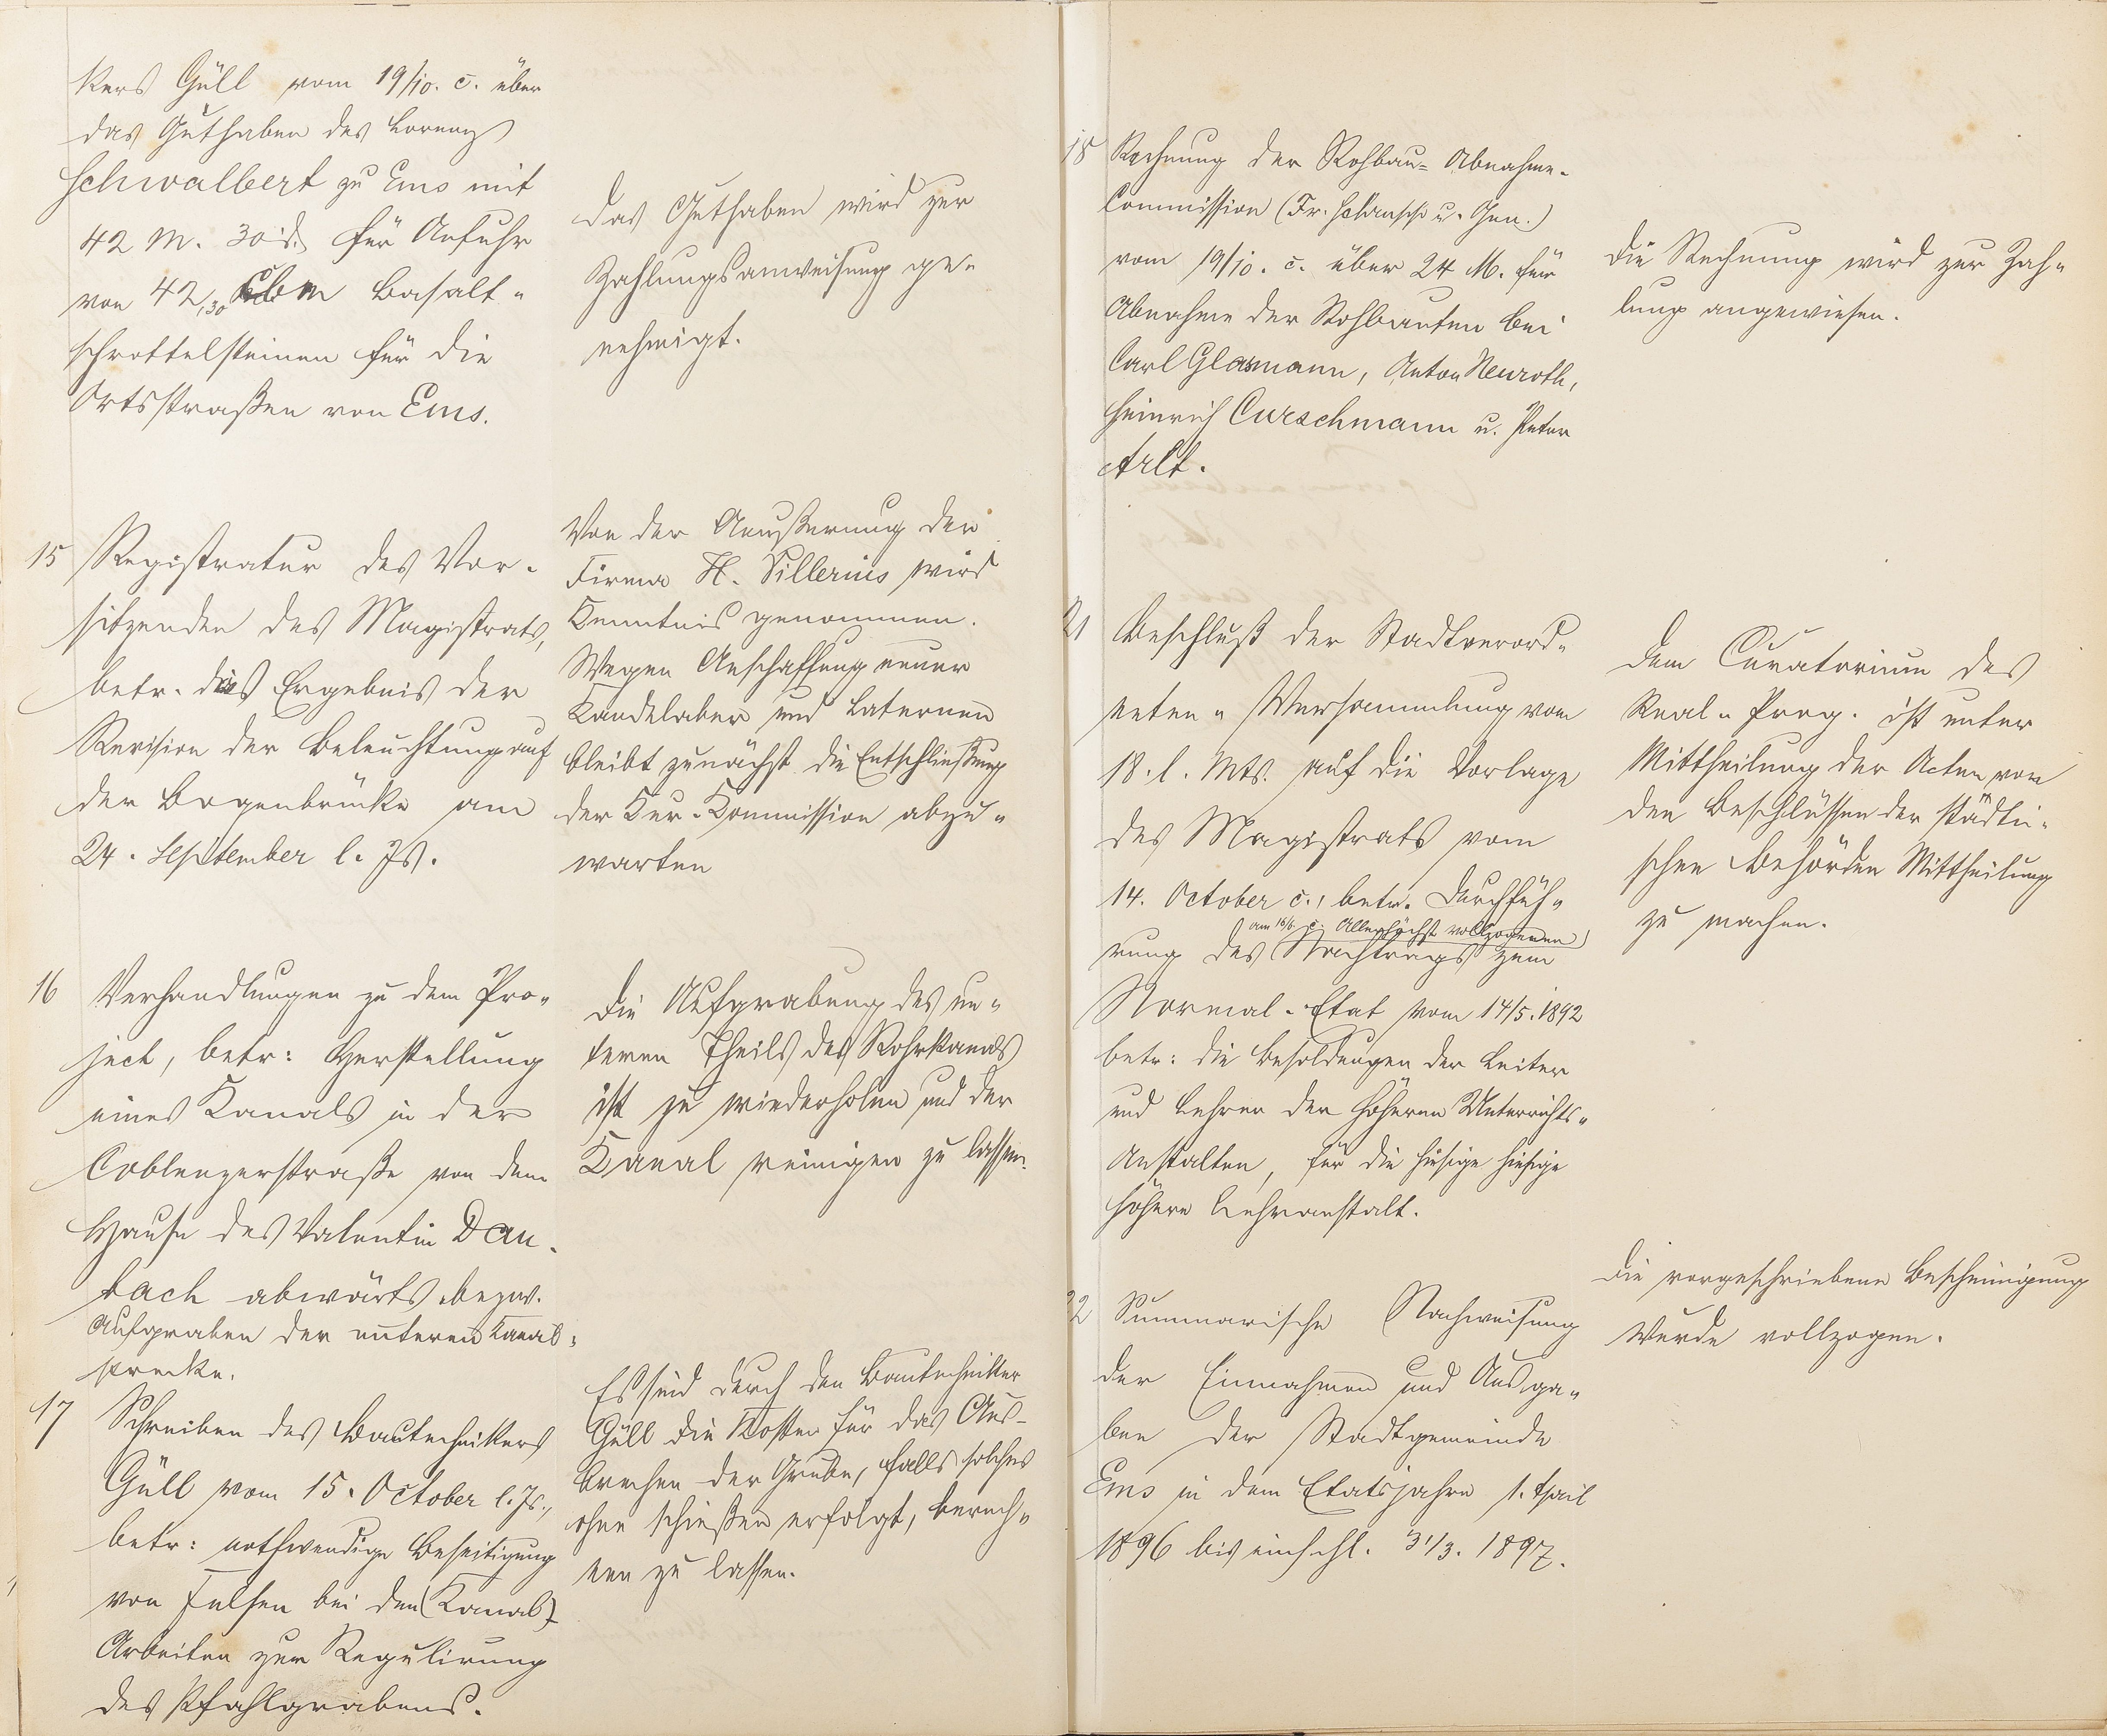 kers Güll vom 19/10. c. über
das Guthaben des Lorenz
Schwalbert zu Ems mit
42 M. 30 d. für Anfuhr
von 42,30 cbm Basalt-
schrottelsteinen für die
Ortsstraßen von Ems.
Das Guthaben wird zur
Zahlungsanweisung ge-
nehmigt.
15 Registratur des Vor-
sitzenden des Magistrats,
betr. das Ergebnis der
Revision der Beleuchtung auf
der Bogenbrücke am
24. September l. Js.
Von der Aeußerung der
Firma H. Sillerius wird
Kenntnis genommen.
Wegen Anschaffung neuer
Kandelaber und Laternen
bleibt zunächst die Entschließung
der Kur-Kommission abzu-
warten
16 Verhandlungen zu dem Pro-
ject, betr: Herstellung
eines Kanals in der
Coblenzerstraße von dem
Hause des Valentin Dau-
bach abwärts bezw.
Aufgraben der unteren Kanal-
strecke.
Die Aufgrabung des un-
teren Theils des Rohrkanals
ist zu wiederholen und der
Kanal reinigen zu lassen.
17 Schreiben des Bautechnikers
Güll vom 15. October l. Js.,
betr: nothwendige Beseitigung
von Felsen bei den (Kanal)-
Arbeiten zur Regulirung
des Pfahlgrabens.
Es sind durch den Bautechniker
Güll die Kosten für das Aus-
brechen der Grube, falls solches
ohne schießen erfolgt, berech-
nen zu lassen.
18 Rechnung der Rohbau-Abnahme-
Commission (Fr. u. Gen.)
vom 19/10. c. über 24 M. für
Abnahme der Rohbauten bei
Carl Glasmann, Anton Neuroth,
Heinrich Curschmann u. Peter
Arlt.
Die Rechnung wird zur Zah-
lung angewiesen.
21 Beschluß der Stadtverord-
neten-Versammlung vom
18. l. Mts. auf die Vorlage
des Magistrats vom
14. October c., betr. Durchfüh-
am 16/6. c. Allerhöchst vollzogenen
rung des Nachtrags zum
Normal-Etat vom 14/5. 1892
betr: die Besoldungen der Leiter
und Lehrer der höheren Unterrichts-
Anstalten, für die hiesige hiesige
höhere Lehranstalt.
Dem Curatorium des
Real-Prog. ist unter
Mittheilung der Acten von
den Beschlüssen der städti-
schen Behörden Mittheilung
zu machen.
22 Summarische Nachweisung
der Einnahmen und Ausga-
ben der Stadtgemeinde
Ems in dem Etatsjahre 1. April
1896 bis einschl. 31/3. 1897.
Die vorgeschriebene Bescheinigung
wurde vollzogen.